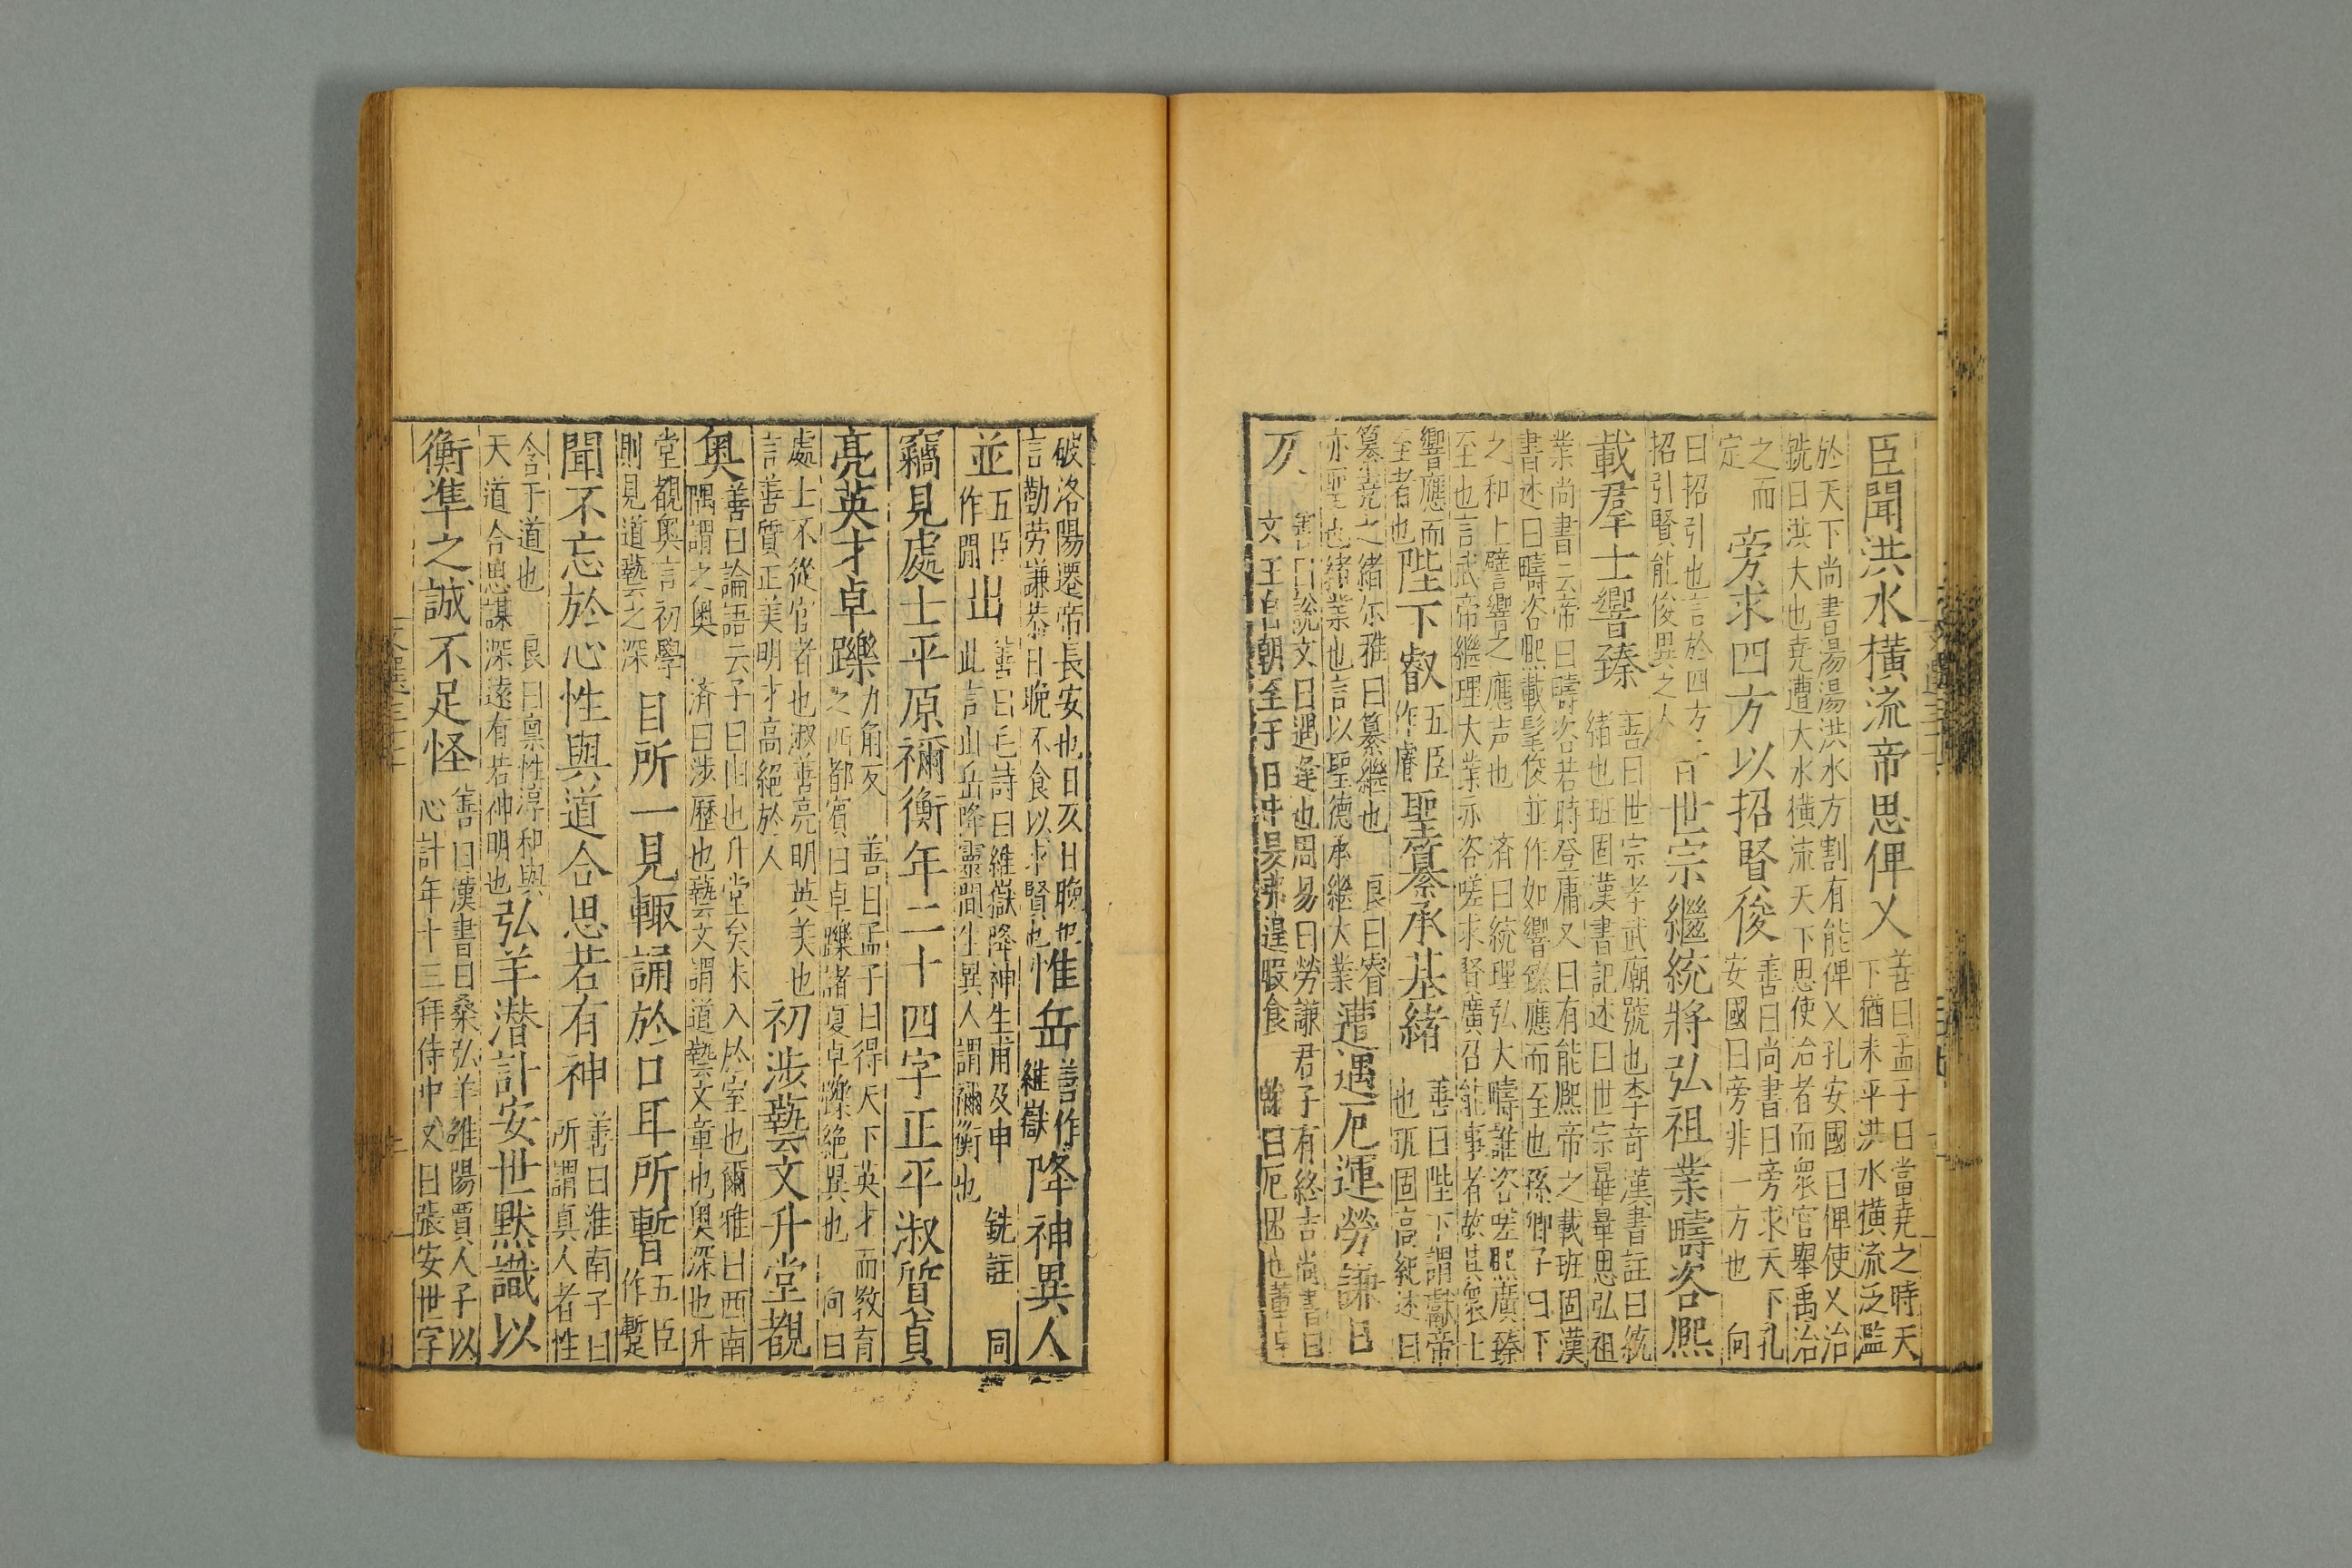 臣聞洪水橫流帝思俾乂善曰孟子曰當堯之時天下猶未平洪水橫流泛濫
於天下尚書湯湯洪水方割有能俾乂孔安國曰俾使乂治
銑曰洪大也堯遭大水橫流天下思使治者而衆官舉禹治
之而定旁求四方以招賢俊善曰尚書曰旁求天下孔安國曰旁非一方也 向
曰招引也言於四方
招引賢能俊異之人
世宗繼統將弘祖業疇咨熙
載羣士響臻善曰世宗孝武廟號也李奇漢書註曰統緒也班固漢書記述曰世宗曄曄思弘祖
業尚書云帝曰疇咨若時登庸又曰有能熙帝之載班固漢
書述曰疇咨熙載髦俊並作如響臻應而至也孫卿子曰下
之和上譬響之應声也 濟曰統理弘大疇誰咨嗟熙廣臻
至也言武帝繼理大業亦咨嗟求賢廣召能事者故其衆士
響應而至者也陛下叡五臣作睿聖纂承基緒善曰陛下謂獻帝也班固高紀述曰
纂堯之緒尔雅曰纂繼也 良曰睿
亦聖也緒業也言以聖德承繼大業
遭遇厄運勞謙日
仄善曰說文曰遇逢也周易曰勞謙君子有終吉尚書曰文王自朝至于日中昃弗遑暇食 曰厄困也董卓
破洛陽遷帝長安也日仄日晚也
言勤劳謙恭日晚不食以求賢也
惟岳善作維嶽降神異人
並五臣作間出善曰毛詩曰維嶽降神生甫及申 銑註同此言山岳降靈間生異人謂禰衡也
竊見處士平原禰衡年二十四字正平淑質貞
亮英才卓躒力角反 善曰孟子曰得天下英才而敎育之西都賓曰卓躒諸夏卓躒絶異也 向曰
處士不從官者也淑善亮明英美也
言善質正美明才高絶於人
初涉藝文升堂覩
奥善曰論語云子曰由也升堂矣未入於室也爾雅曰西南隅謂之奥 濟曰涉歷也藝文謂道藝文章也奥深也升
堂覩奥言初學
則見道藝之深
目所一見輙誦於口耳所暫五臣作蹔
聞不忘於心性與道合思若有神善曰淮南子曰所謂真人者性
合于道也 良曰禀性淳和與
天道合思謀深遠有若神明也
弘羊潜計安世默識以
衡準之誠不足怪善曰漢書曰桑弘羊雒陽賈人子以心計年十三拜侍中又曰張安世字